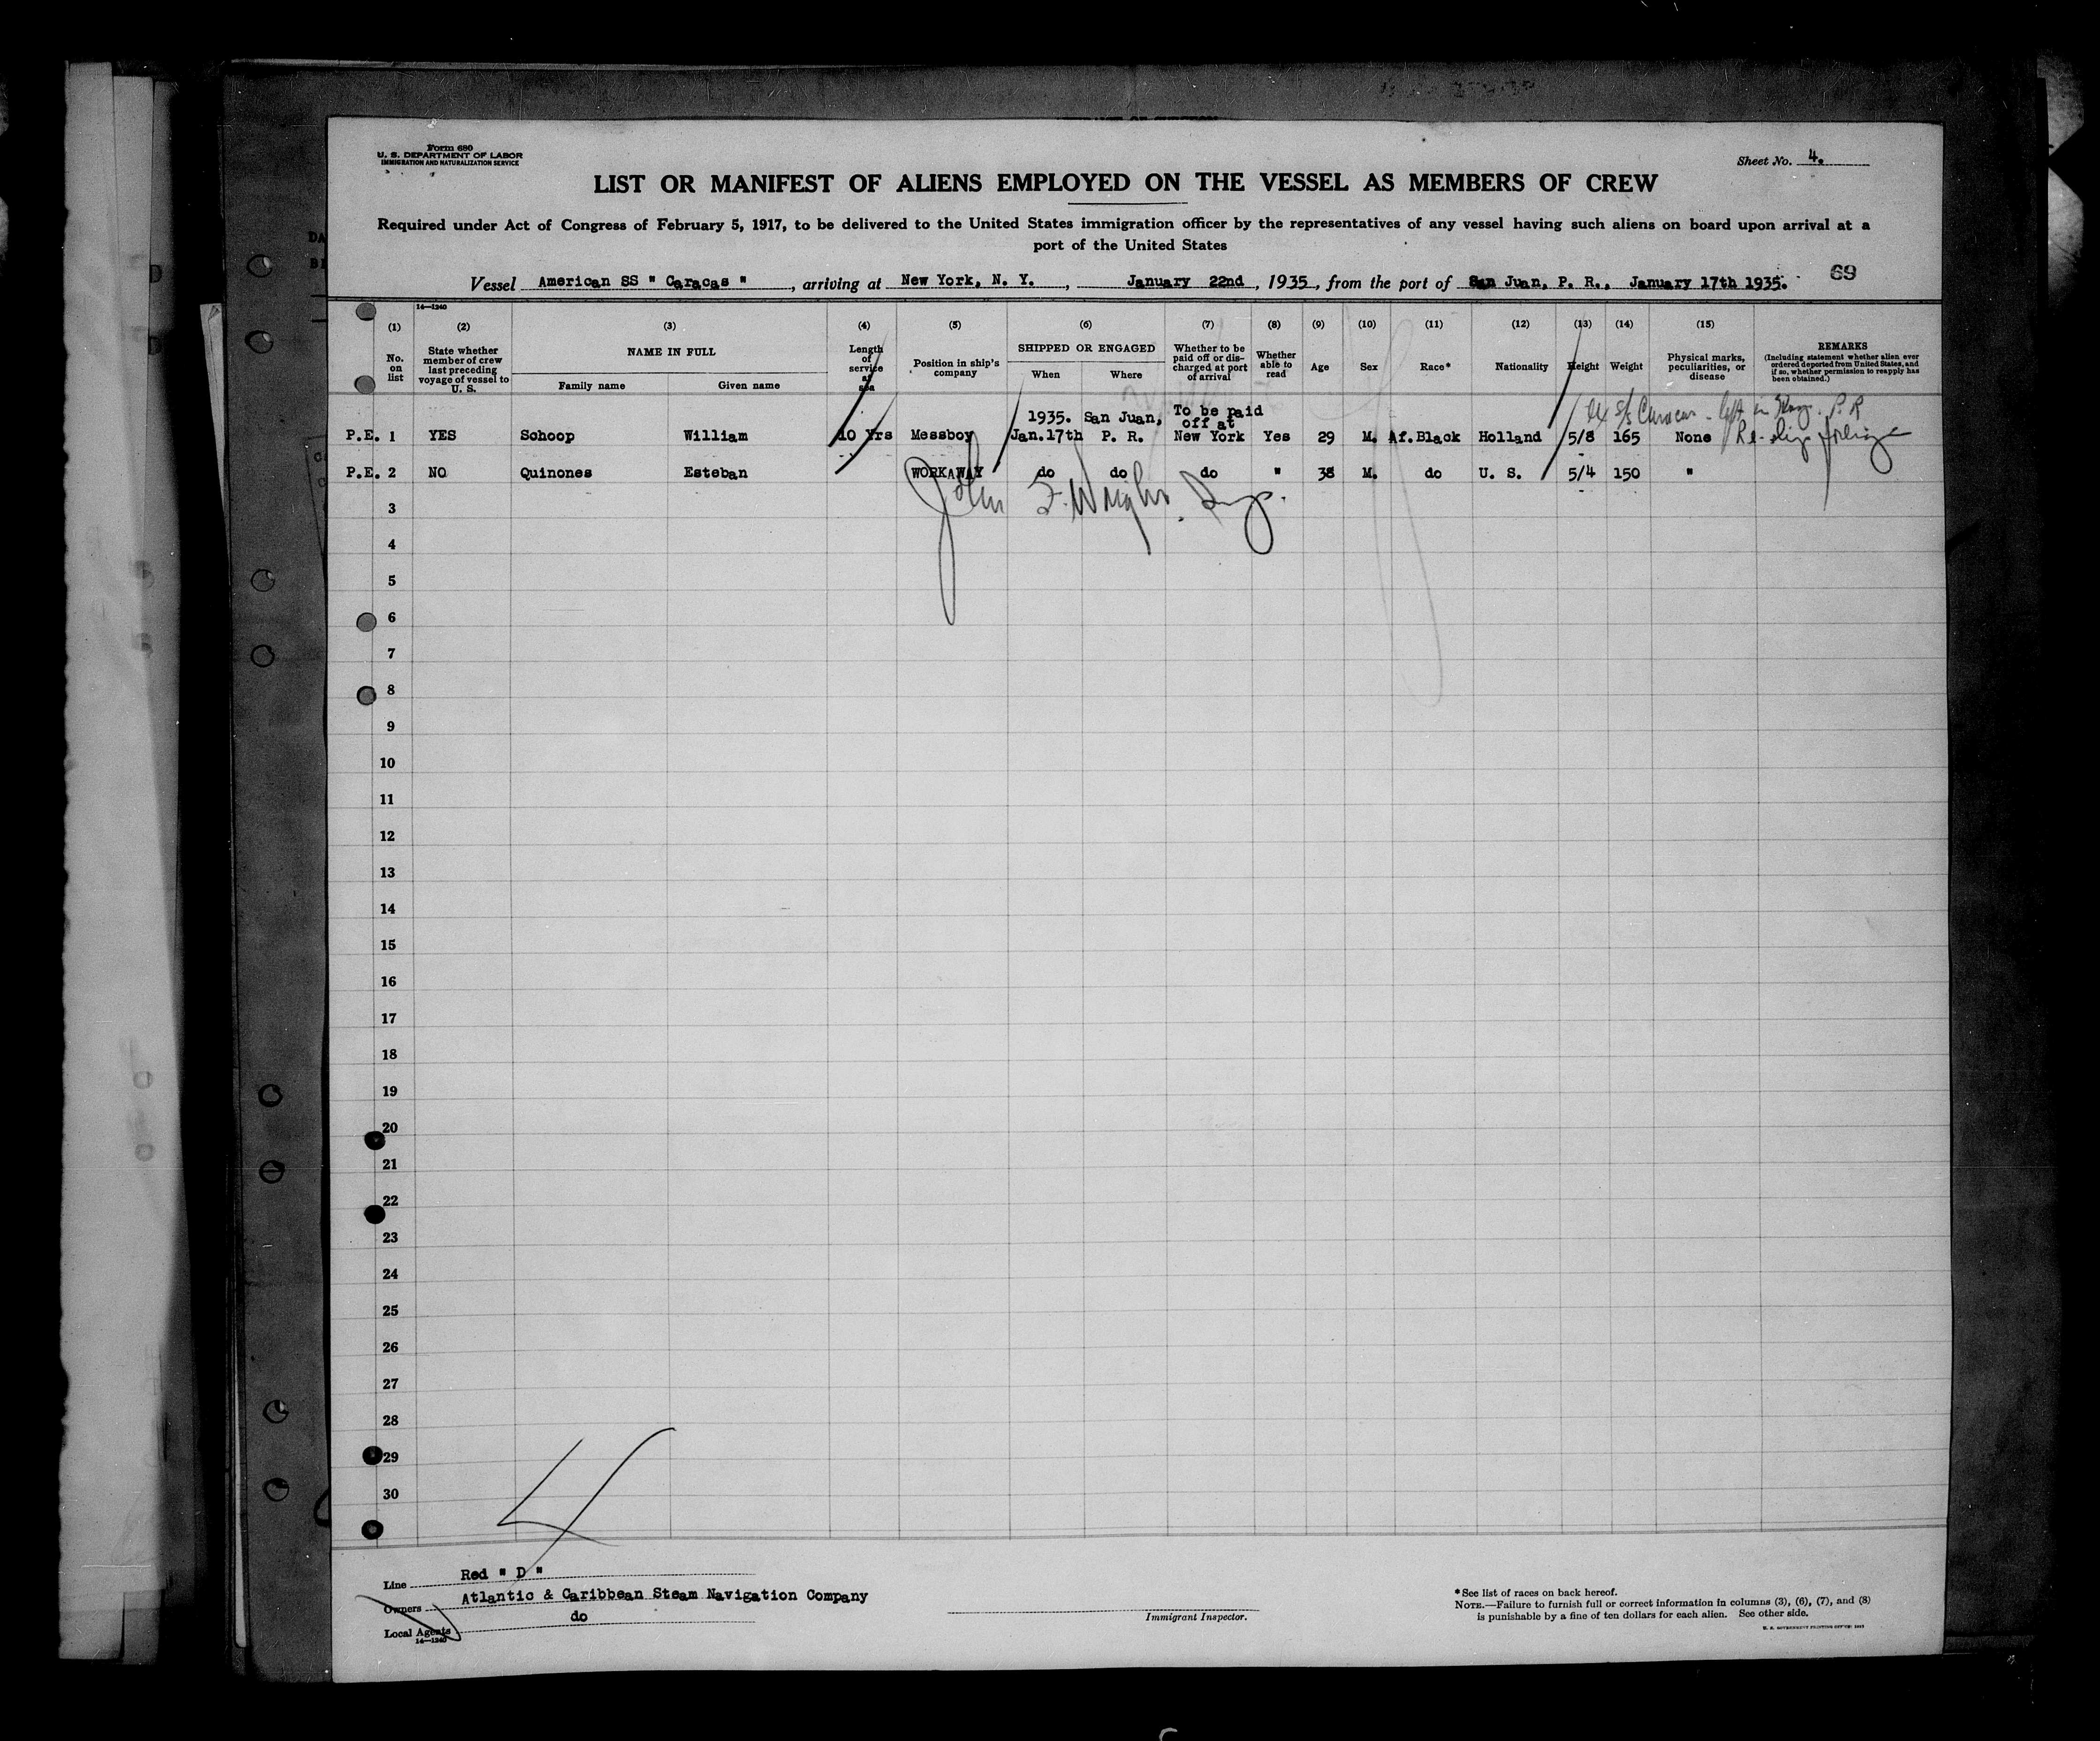 Form 680
U. S. DEPARTMENT OF LABOR
IMMIGRATION AND NATURALIZATION SERVICE
Sheet No. 4.
LIST OR MANIFEST OF ALIENS EMPLOYED ON THE VESSEL AS MEMBERS OF CREW
Required under Act of Congress of February 5, 1917, to be delivered to the United States immigration officer by the representatives of any vessel having such aliens on board upon arrival at a
port of the United States
Vessel American SS " Caracas ", arriving at New York, N. Y., January 22nd, 1935, from the port of San Juan, P. R., January 17th 1935.
69
14—1240
(1) (2) (3) (4) (5) (6) (7) (8) (9) (10) (11) (12) (13) (14) (15)
No. on list
State whether member of crew last preceding voyage of vessel to U. S.
NAME IN FULL
Family name Given name
Length of service at sea
Position in ship's company
SHIPPED OR ENGAGED
When Where
Whether to be paid off or discharged at port of arrival
Whether able to read
Age
Sex
Race*
Nationality
Height
Weight
Physical marks, peculiarities, or disease
REMARKS
(Including statement whether alien ever ordered deported from United States, and if so, whether permission to reapply has been obtained.)
1935. San Juan, To be paid
off at
P.E. 1 YES Schoop William 10 Yrs Messboy Jan.17th P. R. New York Yes 29 M. Af.Black Holland 5/8 165 None
P.E. 2 NO Quinones Esteban WORKAWAY do do do " 38 M. do U. S. 5/4 150 "
John F. Wright. Insp.
3
4
5
6
7
8
9
10
11
12
13
14
15
16
17
18
19
20
21
22
23
24
25
26
27
28
29
30
Line Red " D "
Owners Atlantic & Caribbean Steam Navigation Company
Local Agents do
14—1240
Immigrant Inspector.
*See list of races on back hereof.
NOTE.—Failure to furnish full or correct information in columns (3), (6), (7), and (8)
is punishable by a fine of ten dollars for each alien. See other side.